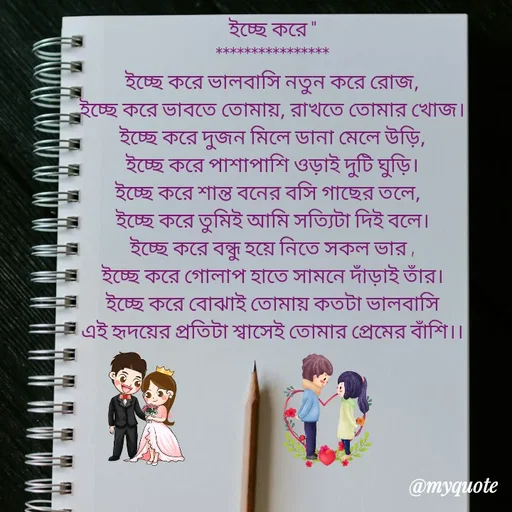 ইচ্ছে করে "
****************
ইচ্ছে করে ভালবাসি নতুন করে রোজ,
ইচ্ছে করে ভাবতে তোমায়, রাখতে তোমার খোজ।
ইচ্ছে করে দুজন মিলে ডানা মেলে উড়ি,
ইচ্ছে করে পাশাপাশি ওড়াই দুটি ঘুড়ি।
ইচ্ছে করে শান্ত বনের বসি গাছের তলে,
ইচ্ছে করে তুমিই আমি সত্যিটা দিই বলে।
ইচ্ছে করে বন্ধু হয়ে নিতে সকল ভার ,
ইচ্ছে করে গোলাপ হাতে সামনে দাঁড়াই তাঁর।
ইচ্ছে করে বোঝাই তোমায় কতটা ভালবাসি
এই হৃদয়ের প্রতিটা শ্বাসেই তোমার প্রেমের বাঁশি।।
@myquote